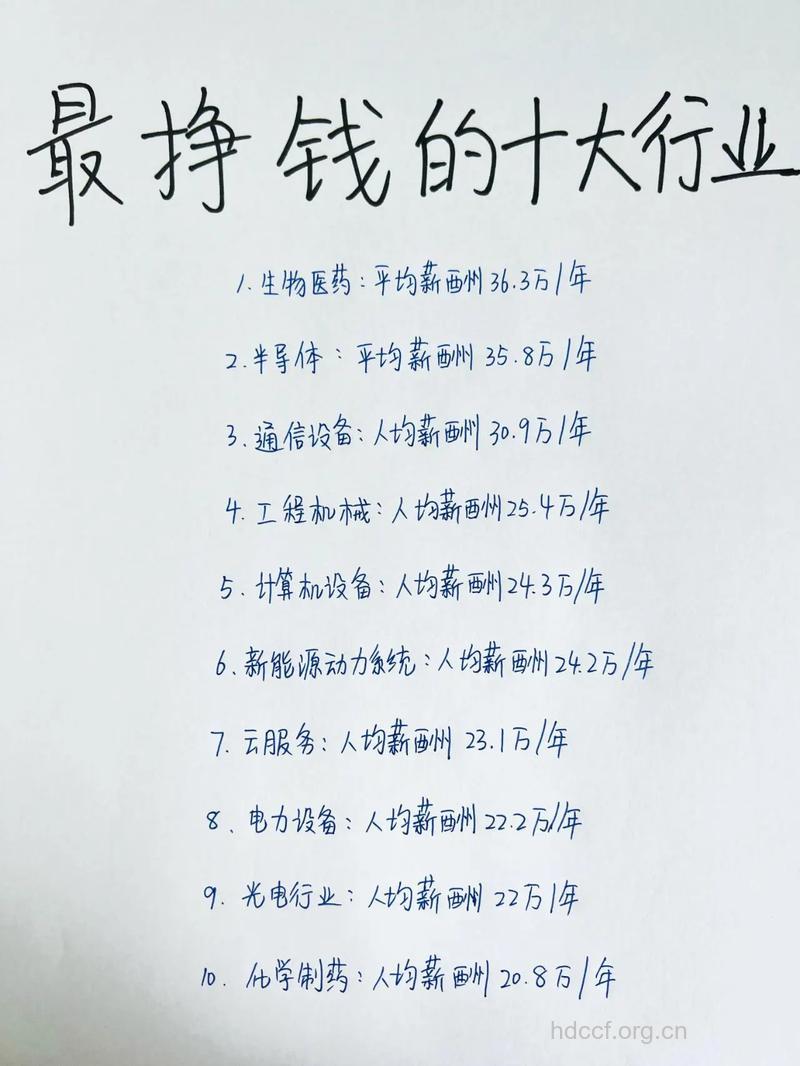 最挣钱的十大行业
1.生物医药：平均薪酬36.3万/年
2.半导体：平均薪酬35.8万/年
3.通信设备：人均薪酬30.9万/年
4.工程机械：人均薪酬25.4万/年
5.计算机设备：人均薪酬24.3万/年
6.新能源动力系统：人均薪酬24.2万/年
7.云服务：人均薪酬23.1万/年
8.电力设备：人均薪酬22.2万/年
9.光电行业：人均薪酬22万/年
10.化学制药：人均薪酬20.8万/年
hdccf.org.cn